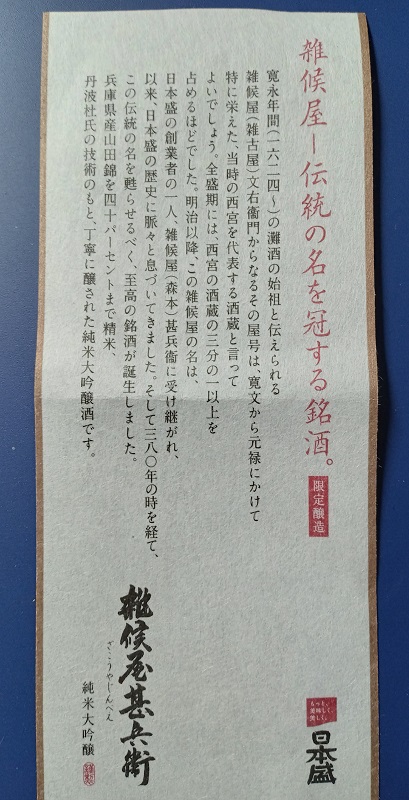 雑候屋―伝統の名を冠する銘酒。
限定醸造
寛永年間(一六二四〜)の灘酒の始祖と伝えられる
雑候屋(雑古屋)文右衞門からなるその屋号は、寛文から元禄にかけて
特に栄えた、当時の西宮を代表する酒蔵と言って
よいでしょう。全盛期には、西宮の酒蔵の三分の一以上を
占めるほどでした。明治以降、この雑候屋の名は、
日本盛の創業者の一人、雑候屋(森本)甚兵衞に受け継がれ、
以来、日本盛の歴史に脈々と息づいてきました。そして三八〇年の時を経て、
この伝統の名を甦らせるべく、至高の銘酒が誕生しました。
兵庫県産山田錦を四十パーセントまで精米、
丹波杜氏の技術のもと、丁寧に醸された純米大吟醸酒です。
もっと、
美味しく、
美しく。
日本盛
雑候屋甚兵衛
ざこうやじんべえ
純米大吟醸